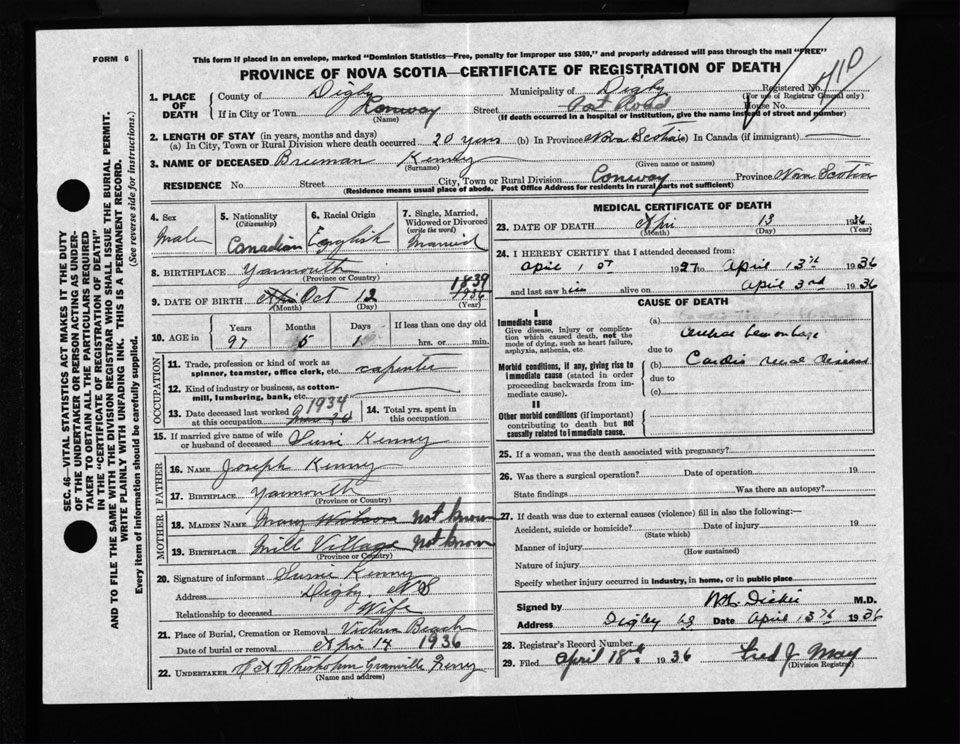 FORM 6
This form if placed in an envelope, marked "Dominion Statistics—Free, penalty for improper use $300," and properly addressed will pass through the mail "FREE"
PROVINCE OF NOVA SCOTIA—CERTIFICATE OF REGISTRATION OF DEATH
1. PLACE OF DEATH County of Digby Municipality of Digby Registered No. 410
(For use of Registrar General only)
If in City or Town Conway Street Post Road House No.
(Name) (If death occurred in a hospital or institution, give the name instead of street and number)
2. LENGTH OF STAY (in years, months and days)
(a) In City, Town or Rural Division where death occurred 20 years (b) In Province Nova Scotia In Canada (if immigrant)
3. NAME OF DECEASED Kenny
(Surname) (Given name or names)
RESIDENCE No. Street City, Town or Rural Division Conway Province Nova Scotia
(Residence means usual place of abode. Post Office Address for residents in rural parts not sufficient)
4. Sex Male
5. Nationality (Citizenship) Canadian
6. Racial Origin English
7. Single, Married, Widowed or Divorced (write the word) Married
8. BIRTHPLACE Yarmouth
(Province or Country)
9. DATE OF BIRTH Oct 12 1839 1936
(Month) (Day) (Year)
10. AGE in Years Months Days If less than one day old
97 5 1 hrs. or min.
OCCUPATION
11. Trade, profession or kind of work as spinner, teamster, office clerk, etc. carpenter
12. Kind of industry or business, as cotton-mill, lumbering, bank, etc.
13. Date deceased last worked at this occupation 1934
14. Total yrs. spent in this occupation
15. If married give name of wife or husband of deceased Kenny
FATHER
16. NAME Joseph Kenny
17. BIRTHPLACE Yarmouth
(Province or Country)
MOTHER
18. MAIDEN NAME Mary Not known
19. BIRTHPLACE Mill Village Not known
(Province or Country)
20. Signature of informant Kenny
Address Digby, NS
Relationship to deceased Wife
21. Place of Burial, Cremation or Removal Victoria Beach
Date of burial or removal 14 1936
22. UNDERTAKER Chisholm Granville Ferry
(Name and address)
MEDICAL CERTIFICATE OF DEATH
23. DATE OF DEATH 13 1936
(Month) (Day) (Year)
24. I HEREBY CERTIFY that I attended deceased from:
April 1st 1927 to April 13th 1936
and last saw h alive on April 3rd 1936
CAUSE OF DEATH
I
Immediate cause (a)
Give disease, injury or complication which caused death, not the mode of dying, such as heart failure, asphyxia, asthenia, etc.
due to
Morbid conditions, if any, giving rise to immediate cause (stated in order proceeding backwards from immediate cause). (b) Cardio renal disease
due to
(c)
II
Other morbid conditions (if important) contributing to death but not causally related to immediate cause.
25. If a woman, was the death associated with pregnancy?
26. Was there a surgical operation? Date of operation 19
State findings Was there an autopsy?
27. If death was due to external causes (violence) fill in also the following:—
Accident, suicide or homicide? Date of injury 19
(State which)
Manner of injury
(How sustained)
Nature of injury
Specify whether injury occurred in industry, in home, or in public place
Signed by Dickie M.D.
Address Digby NS Date April 13th 1936
28. Registrar's Record Number
29. Filed April 18th 1936 Fred J. May
(Division Registrar)
SEC. 46—VITAL STATISTICS ACT MAKES IT THE DUTY
OF THE UNDERTAKER OR PERSON ACTING AS UNDER-
TAKER TO OBTAIN ALL THE PARTICULARS REQUIRED
IN THE "CERTIFICATE OF REGISTRATION OF DEATH"
AND TO FILE THE SAME WITH THE DIVISION REGISTRAR WHO SHALL ISSUE THE BURIAL PERMIT.
WRITE PLAINLY WITH UNFADING INK. THIS IS A PERMANENT RECORD.
Every item of information should be carefully supplied. (See reverse side for instructions.)